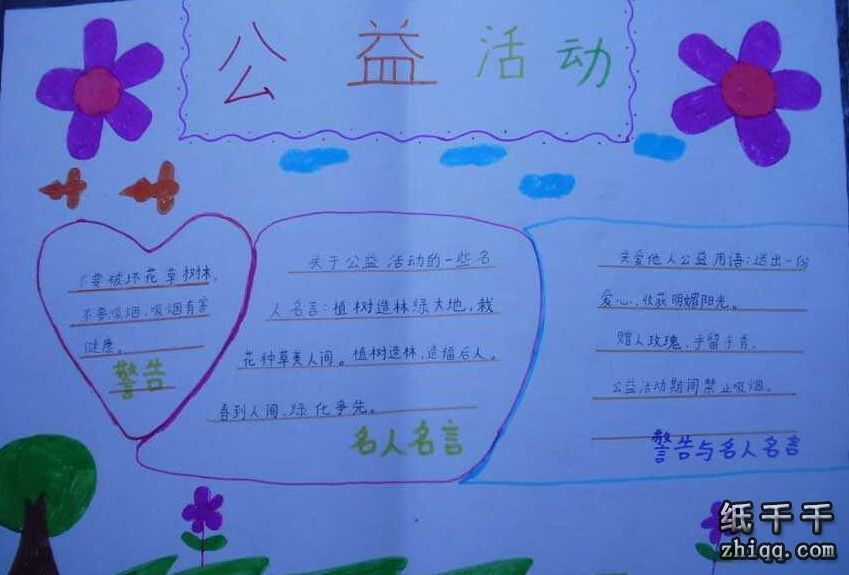 公益活动
不要破坏花草树林。
不要吸烟,吸烟有害
健康。
警告
关于公益活动的一些名
人名言:植树造林绿大地,栽
花种草美人间。植树造林,造福后人。
春到人间,绿化争先。
名人名言
关爱他人公益用语:送出一份
爱心,收获明媚阳光。
赠人玫瑰,手留余香。
公益活动期间禁止吸烟。
警告与名人名言
纸千千
zhiqq.com